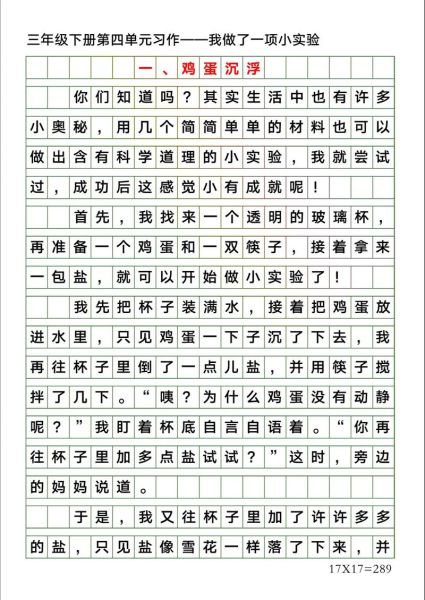 三年级下册第四单元习作——我做了一项小实验
一、鸡蛋沉浮
你们知道吗？其实生活中也有许多
小奥秘，用几个简简单单的材料也可以
做出含有科学道理的小实验，我就尝试
过，成功后这感觉小有成就呢！
首先，我找来一个透明的玻璃杯，
再准备一个鸡蛋和一双筷子，接着拿来
一包盐，就可以开始做小实验了！
我先把杯子装满水，接着把鸡蛋放
进水里，只见鸡蛋一下子沉了下去，我
再往杯子里倒了一点儿盐，并用筷子搅
拌了几下。“咦？为什么鸡蛋没有动静
呢？”我盯着杯底自言自语着。“你再
往杯子里加多点盐试试？”这时，旁边
的妈妈说道。
于是，我又往杯子里加了许许多多
的盐，只见盐像雪花一样落了下来，并
17X17=289